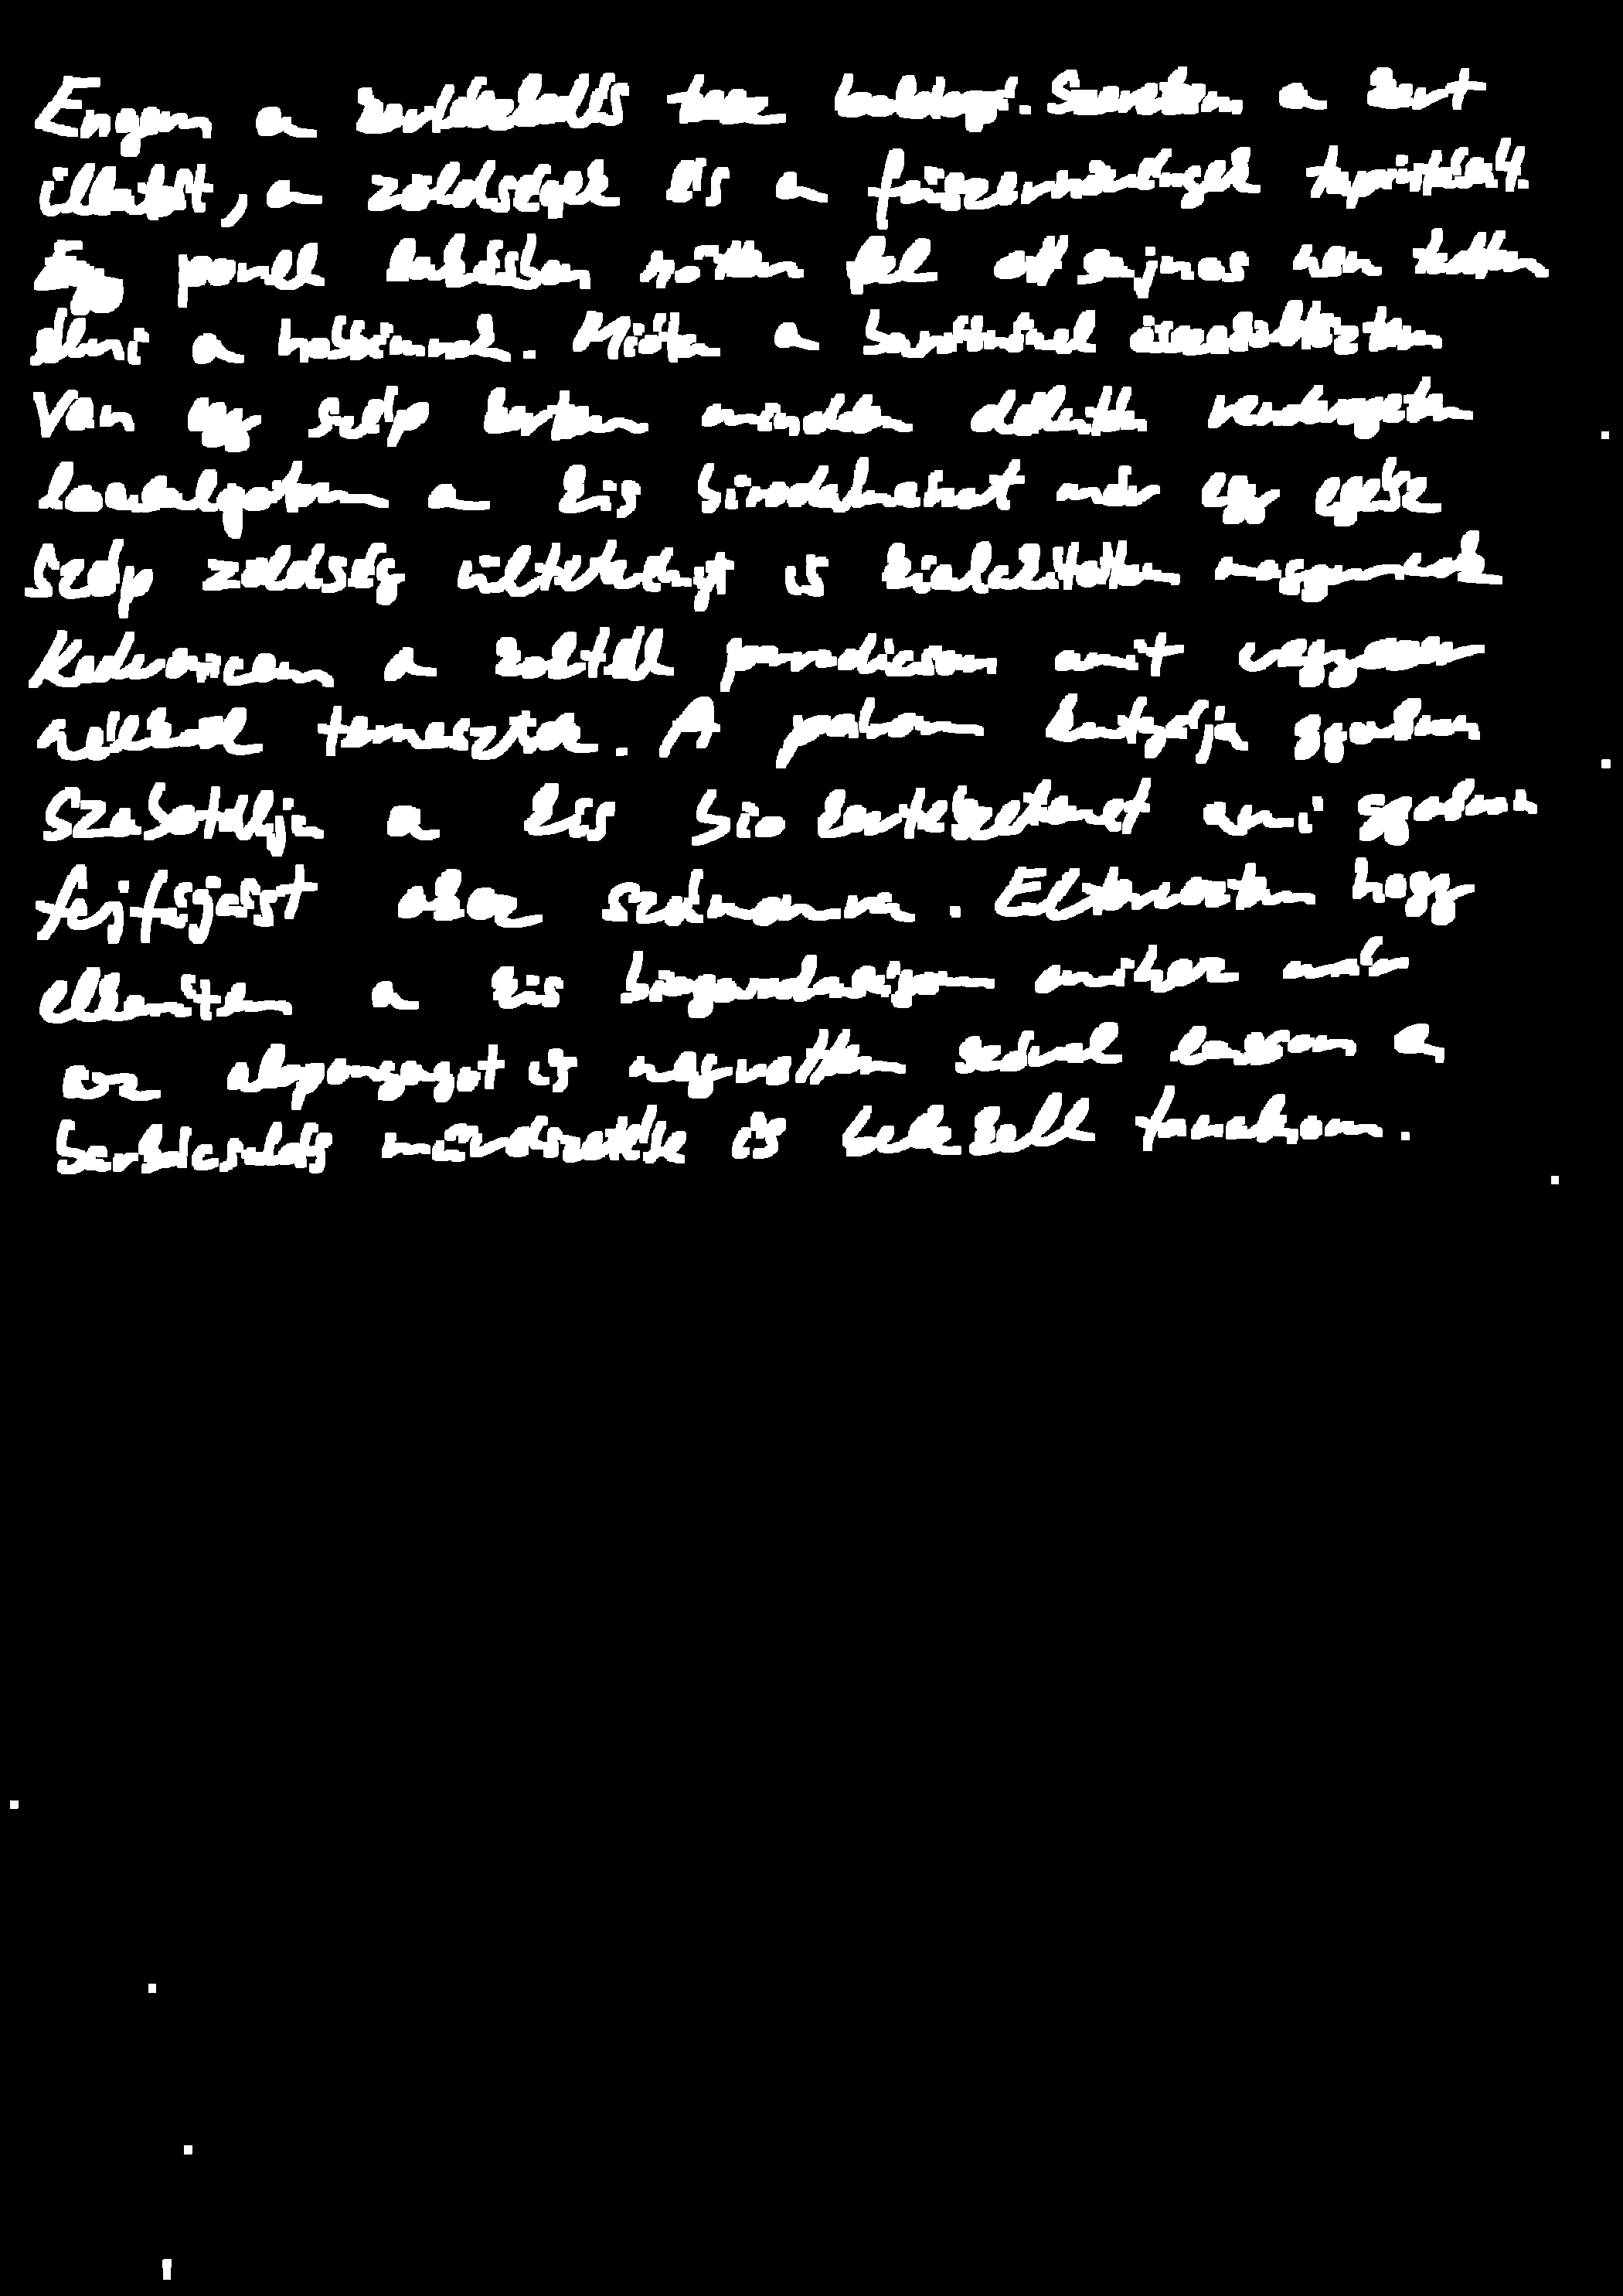 Engem a kertészkedés tesz boldoggá. Szeretem a kert
illatát, a zöldségek és a fűszernövények
Egy panel lakásban nőttem fel ott sajnos nem tudtam
élni a hobbimnak. Mióta a barátnőmmel összeköltöztem
Van egy szép kertem minden délután
a kis birodalmamat már egy egész
szép zöldség ültetvényt is kialakítottam magamnak
Kedvencem a koktél paradicsom amit
nélkül termesztek. A párom kutyája gyakran
szabotálja a kis bio kertészetemet ami gyakran
fejfájást okoz számomra. Elterveztem hogy
elkészítem a kis biogazdaságom amihez már
az alapanyagot is megvettem szóval lassan a
barkácsolás művészetébe is bele kell tanulnom.